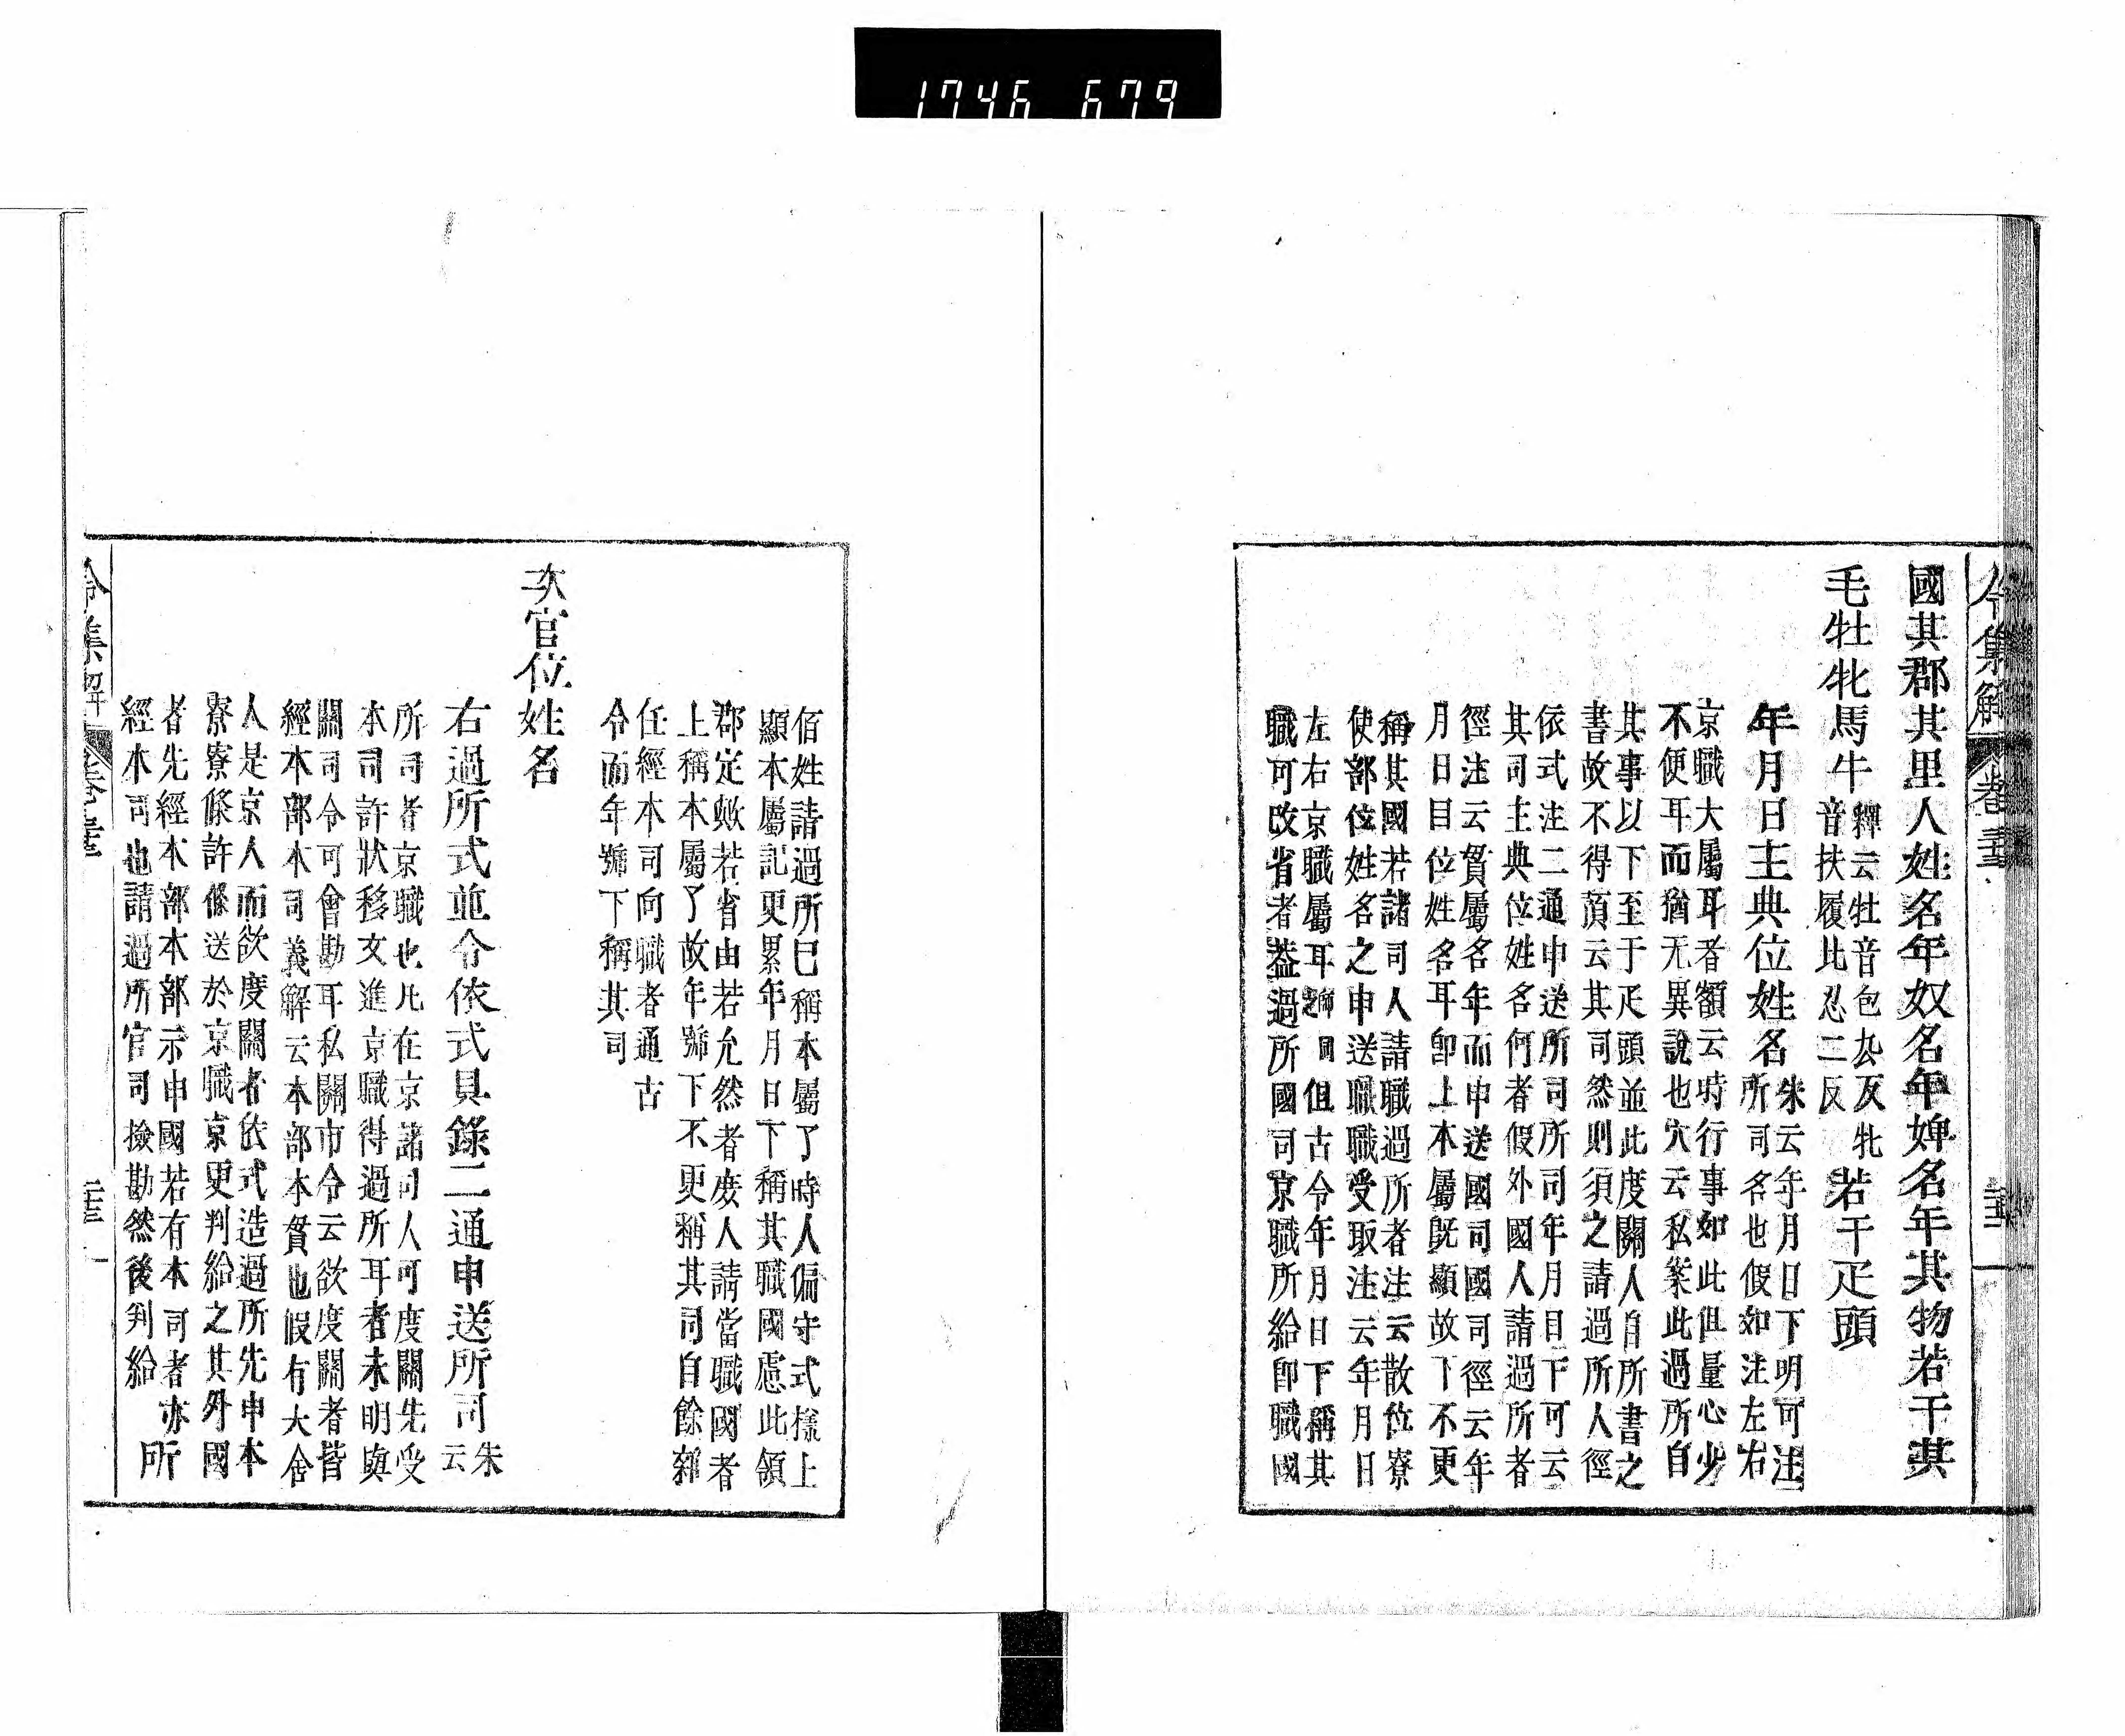 1746 679
令集解 卷三十三
國其郡其里人姓名年奴名年婢名年其物若干其
毛牡牝馬牛
釋云牡音包厷反牝
音扶履比忍二反
若干疋頭
年月日主典位姓名
朱云年月日下明可注
所司名也假如注左右
京職大屬耳者額云時行事如此但量心少
不便耳而猶无異說也穴云私案此過所自
其事以下至于疋頭並此度關人自所書之
書故不得蒖云其司然則須之請過所人徑
依式注二通申送所司所司年月日下可云
其司主典位姓名何者假外國人請過所者
徑注云貿屬名年而申送國司國司徑云年
月日目位姓名耳卽上本屬旣顯故下不更
稱其國若諸司人請職過所者注云散位寮
使部位姓名之申送職職受取注云年月日
左右京職屬耳師同但古令年月日下稱其
職可改省者葢過所國司京職所給卽職國
佰姓請過所巳稱本屬了時人偏守式樣上
顯本屬記更累年月日下稱其職國慮此領
郡定歟若省由若允然者庻人請當職國者
上稱本屬了故年號下不更稱其司自餘雜
任經本司向職者通古
令而年號下稱其司
次官位姓名
右過所式並令依式具錄二通申送所司
朱
云
所司者京職也凡在京諸司人可度關先受
本司許狀移文進京職得過所耳者未明與
關司令可會勘耳私關市令云欲度關者皆
經本部本司義解云本部本貿也假有大舍
人是京人而欲度關者依式造過所先申本
寮寮條許條送於京職京更判給之其外國
者先經本部本部示申國若有本司者亦
經本司也請過所官司撿勘然後判給
所
令集解